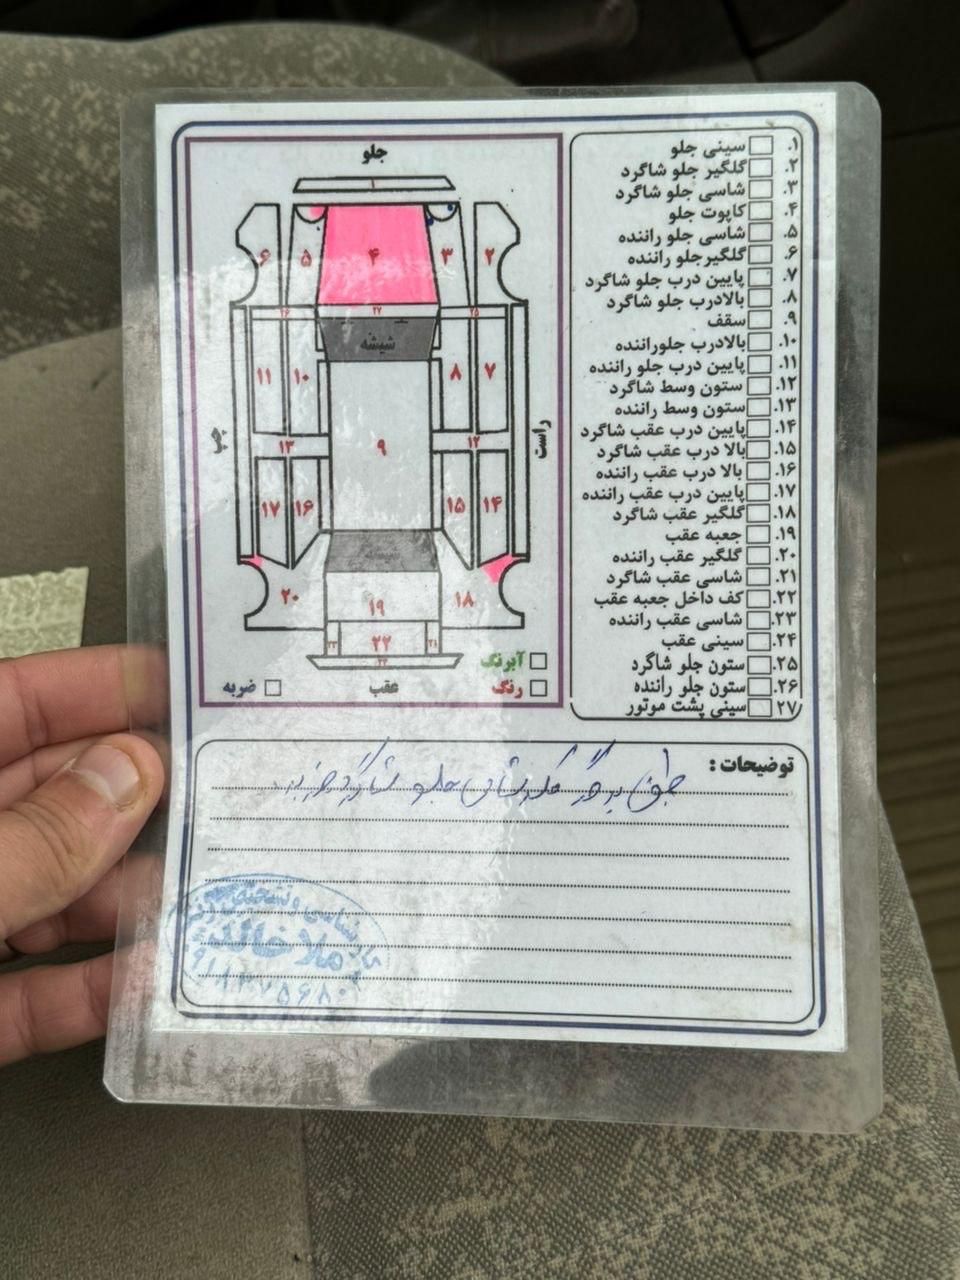 جلو
۱
۶
۵
۴
۳
۲
۲۶
۲۷
۲۵
شیشه
۱۱
۱۰
۸
۷
۹
چپ
راست
۱۳
۱۲
۱۷
۱۶
۱۵
۱۴
شیشه
۲۰
۱۹
۱۸
۲۳
۲۲
۲۱
آبرنگ
ضربه
عقب
رنگ
۱. سینی جلو
۲. گلگیر جلو شاگرد
۳. شاسی جلو شاگرد
۴. کاپوت جلو
۵. شاسی جلو راننده
۶. گلگیرجلو راننده
۷. پایین درب جلو شاگرد
۸. بالادرب جلو شاگرد
۹. سقف
۱۰. بالادرب جلوراننده
۱۱. پایین درب جلو راننده
۱۲. ستون وسط شاگرد
۱۳. ستون وسط راننده
۱۴. پایین درب عقب شاگرد
۱۵. بالا درب عقب شاگرد
۱۶. بالا درب عقب راننده
۱۷. پایین درب عقب راننده
۱۸. گلگیر عقب شاگرد
۱۹. جعبه عقب
۲۰. گلگیر عقب راننده
۲۱. شاسی عقب شاگرد
۲۲. کف داخل جعبه عقب
۲۳. شاسی عقب راننده
۲۴. سینی عقب
۲۵. ستون جلو شاگرد
۲۶. ستون جلو راننده
۲۷. سینی پشت موتور
توضیحات :
جلو شاگرد
کارشناسی و تشخیص
ملاخالد